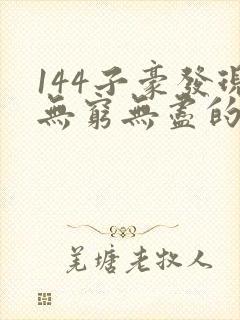 144子豪發現
無窮無盡的
羌塘老牧人